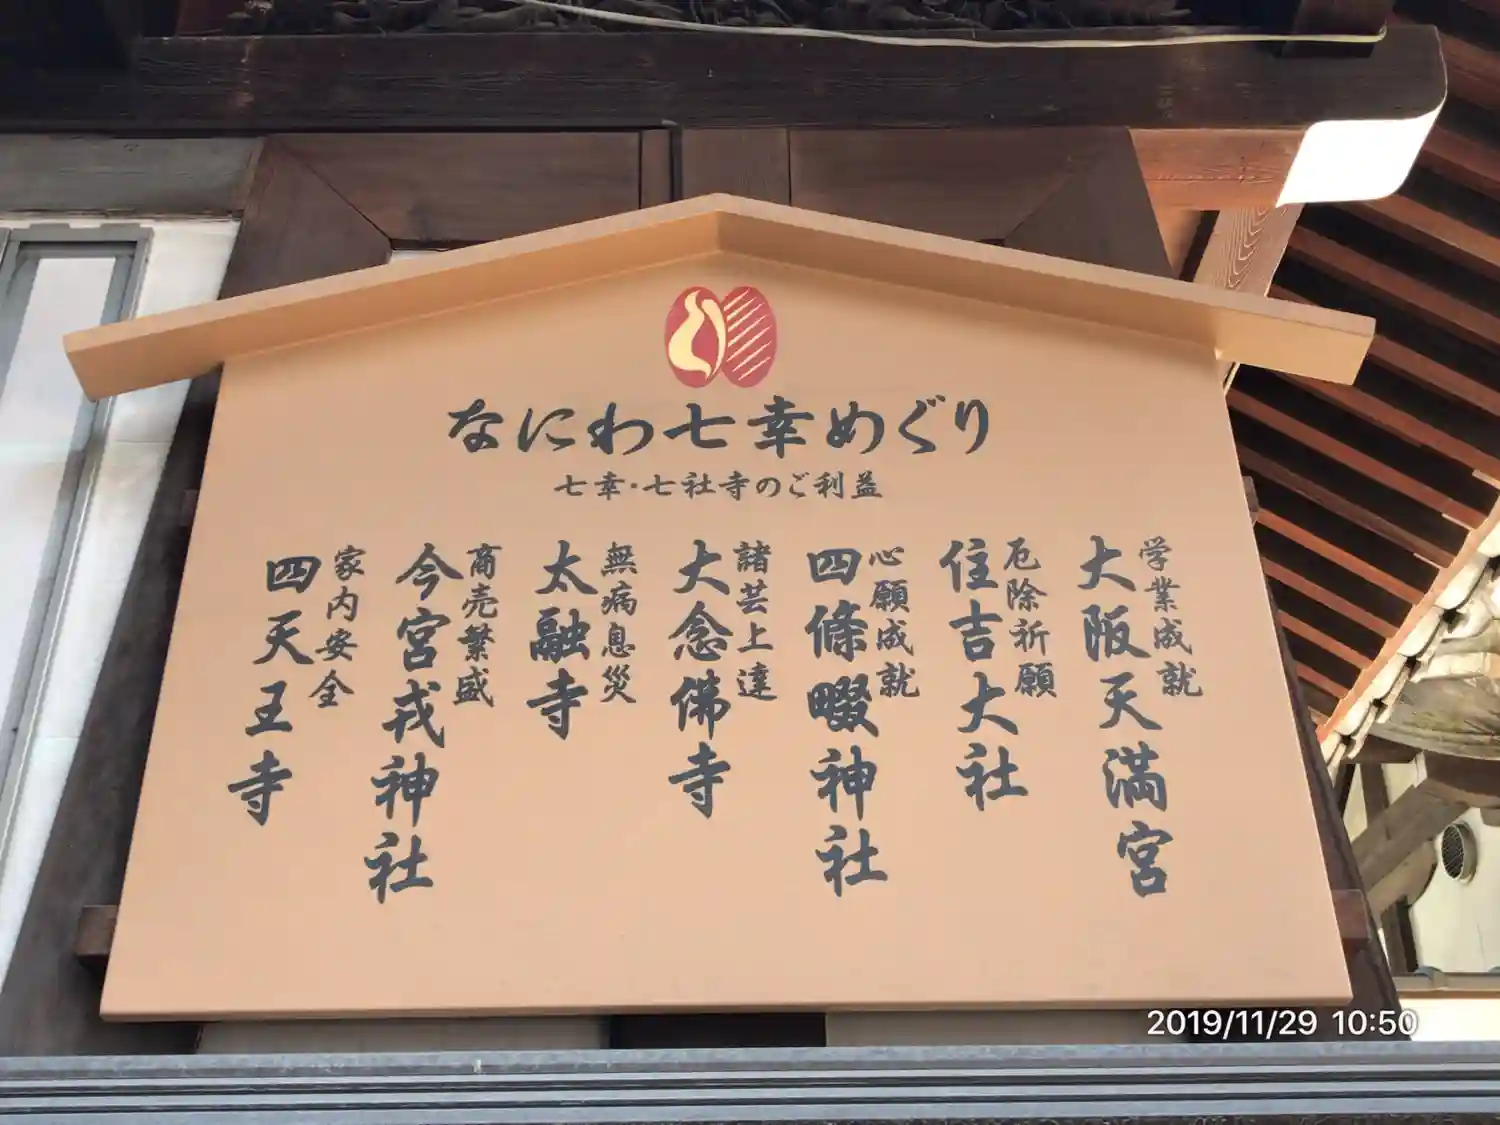 なにわ七幸めぐり
七幸・七社寺のご利益
学業成就
大阪天満宮
厄除祈願
住吉大社
心願成就
四條畷神社
諸芸上達
大念佛寺
無病息災
太融寺
商売繁盛
今宮戎神社
家内安全
四天王寺
2019/11/29 10:50